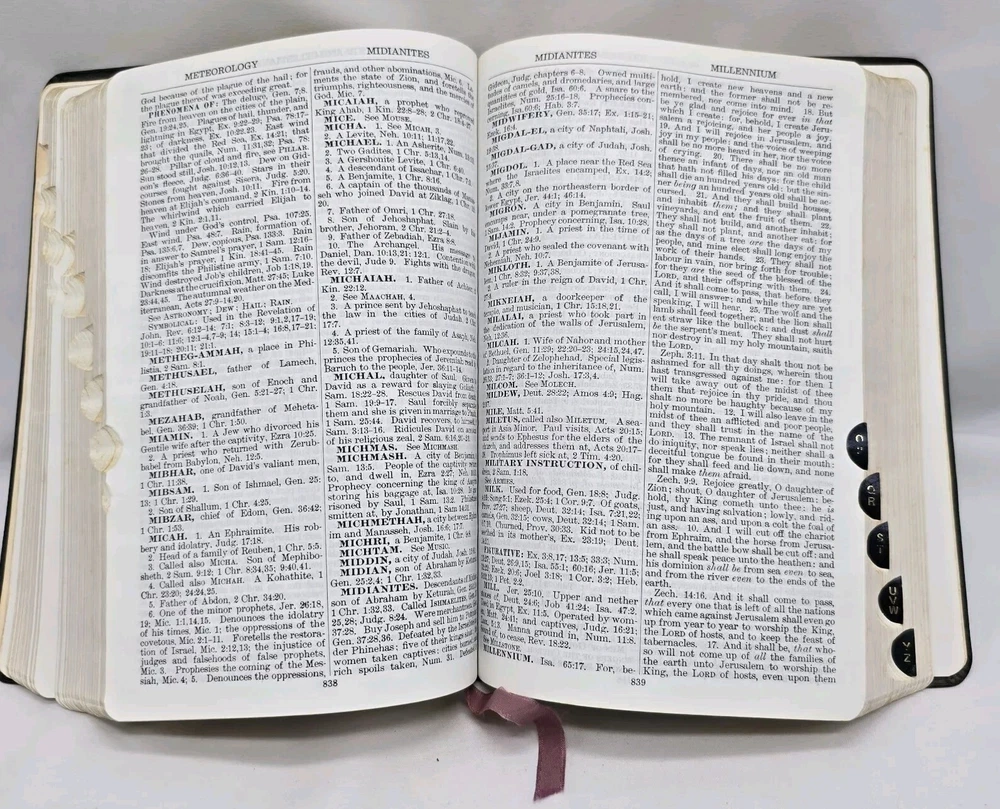 METEOROLOGY
MIDIANITES
God because of the plague of the hail; for
the plague thereof was exceeding great.
PHENOMENA OF: The deluge, Gen. 7:8.
Fire from heaven on the cities of the plain,
Gen. 19:24,25. Plagues of hail, thunder, and
lightning in Egypt, Ex. 9:22-29; Psa. 78:17-
23; of darkness, Ex. 10:22,23. East wind
that divided the Red Sea, Ex. 14:21; that
brought the quails, Num. 11:31,32; Psa. 78:
26-28. Pillar of cloud and fire, see PILLAR.
Sun stood still, Josh. 10:12,13. Dew on Gid-
eon's fleece, Judg. 6:36-40. Stars in their
courses fought against Sisera, Judg. 5:20.
Stones from heaven, Josh. 10:11. Fire from
heaven at Elijah's command, 2 Kin. 1:10-14.
The whirlwind which carried Elijah to
heaven, 2 Kin. 2:1,11.
Wind under God's control, Psa. 107:25.
East wind, Psa. 48:7. Rain, formation of,
Psa. 135:6,7. Dew, copious, Psa. 133:3. Rain
in answer to Samuel's prayer, 1 Sam. 12:16-
18; Elijah's prayer, 1 Kin. 18:41-45. Rain
discomfits the Philistine army, 1 Sam. 7:10.
Wind destroyed Job's children, Job 1:18,19.
Darkness at the crucifixion, Matt. 27:45; Luke
23:44,45. The autumnal weather on the Med-
iterranean, Acts 27:9-14,20.
See ASTRONOMY; DEW; HAIL; RAIN.
SYMBOLICAL: Used in the Revelation of
John, Rev. 6:12-14; 7:1; 8:3-12; 9:1,2,17-19;
10:1-6; 11:6; 12:1-4,7-9; 14; 15:1-4; 16:8,17-21;
19:11-18; 20:11; 21:1.
METHEG-AMMAH, a place in Phi-
listia, 2 Sam. 8:1.
METHUSAEL, father of Lamech,
Gen. 4:18.
METHUSELAH, son of Enoch and
grandfather of Noah, Gen. 5:21-27; 1 Chr.
1:3.
MEZAHAB, grandfather of Meheta-
bel, Gen. 36:39; 1 Chr. 1:50.
MIAMIN. 1. A Jew who divorced his
Gentile wife after the captivity, Ezra 10:25.
2. A priest who returned with Zerub-
babel from Babylon, Neh. 12:5.
MIBHAR, one of David's valiant men,
1 Chr. 11:38.
MIBSAM. 1. Son of Ishmael, Gen. 25:
13; 1 Chr. 1:29.
2. Son of Shallum, 1 Chr. 4:25.
MIBZAR, chief of Edom, Gen. 36:42;
1 Chr. 1:53.
MICAH. 1. An Ephraimite. His rob-
bery and idolatry, Judg. 17:18.
2. Head of a family of Reuben, 1 Chr. 5:5.
3. Called also MICHA. Son of Mephibo-
sheth. 2 Sam. 9:12; 1 Chr. 8:34,35; 9:40,41.
4. Called also MICHAH. A Kohathite, 1
Chr. 23:20; 24:24,25.
5. Father of Abdon, 2 Chr. 34:20.
6. One of the minor prophets, Jer. 26:18,
19; Mic. 1:1,14,15. Denounces the idolatry
of his times, Mic. 1; the oppressions of the
covetous, Mic. 2:1-11. Foretells the restora-
tion of Israel, Mic. 2:12,13; the injustice of
judges and falsehoods of false prophets,
Mic. 3. Prophesies the coming of the Mes-
siah, Mic. 4; 5. Denounces the oppressions,
frauds, and other abominations, Mic. 6.
ments the state of Zion, and foretells
triumphs, righteousness, and the mercies of
God, Mic. 7.
MICAIAH, a prophet who
King Ahab, 1 Kin. 22:8-28; 2 Chr. 18:4-27.
MICE. See MOUSE.
MICHA. 1. See MICAH, 3.
2. A Levite, Neh. 10:11; 11:17,22.
MICHAEL. 1. An Asherite, Num. 13:13.
2. Two Gadites, 1 Chr. 5:13,14.
3. A Gershonite Levite, 1 Chr. 6:40.
4. A descendant of Issachar, 1 Chr. 7:3.
5. A Benjamite, 1 Chr. 8:16.
6. A captain of the thousands of
seh who joined David at Ziklag, 1 Chr. 12:
20.
7. Father of Omri, 1 Chr. 27:18.
8. Son of Jehoshaphat. Slain by
brother, Jehoram, 2 Chr. 21:2-4.
9. Father of Zebadiah, Ezra 8:8.
10. The Archangel. His message
Daniel, Dan. 10:13,21; 12:1. Contention
the devil, Jude 9. Fights with the dragon,
Rev. 12:7.
MICHAIAH. 1. Father of Achbor,
Kin. 22:12.
2. See MAACHAH, 4.
3. A prince sent by Jehoshaphat to
the law in the cities of Judah, 2
17:7.
4. A priest of the family of Asaph, Neh.
12:35,41.
5. Son of Gemariah. Who expounds
princes the prophecies of Jeremiah read
Baruch to the people, Jer. 36:11-14.
MICHAL, daughter of Saul. Given
David as a reward for slaying Goliath,
Sam. 18:22-28. Rescues David from
1 Sam. 19:9-17. Saul forcibly
them and she is given in marriage to
1 Sam. 25:44. David recovers to himself,
Sam. 3:13-16. Ridicules David on account
of his religious zeal, 2 Sam. 6:16,21-23.
MICHMAS. See MICHMASH.
MICHMASH. A city of Benjamin,
Sam. 13:5. People of the captivity
to, and dwell in, Ezra 2:27; Neh.
Prophecy concerning the king of Assyria
storing his baggage at, Isa. 10:28.
risoned by Saul, 1 Sam. 13:2.
smitten at, by Jonathan, 1 Sam. 14:31.
MICHMETHAH, a city between Ephra-
im and Manasseh, Josh. 16:6; 17:7.
MICHRI, a Benjamite, 1 Chr. 9:8.
MICHTAM. See MUSIC.
MIDDIN, a city of Judah, Josh. 15:61.
MIDIAN, son of Abraham by Keturah,
Gen. 25:2,4; 1 Chr. 1:32,33.
MIDIANITES. Descendants of Midian,
son of Abraham by Keturah, Gen.
1 Chr. 1:32,33. Called ISHMAELITES, Gen.
25:28; Judg. 8:24. Were merchantmen,
37:28. Buy Joseph and sell him
Gen. 37:28,36. Defeated by the Israelites
der Phinehas; five of their kings slain;
women taken captives; cities burned;
rich spoils taken, Num. 31. Defeated
838
MIDIANITES
MILLENNIUM
Gideon, Judg. chapters 6-8. Owned multi-
of camels, and dromedaries, and large
quantities of gold, Isa. 60:6. A snare to the
Israelites, Num. 25:16-18. Prophecies con-
Isa. 60:6; Hab. 3:7.
MIDWIFERY, Gen. 35:17; Ex. 1:15-21;
Ezek. 16:4.
MIGDAL-EL, a city of Naphtali, Josh.
19:38.
MIGDAL-GAD, a city of Judah, Josh.
MIGDOL. 1. A place near the Red Sea
where the Israelites encamped, Ex. 14:2;
Num. 33:7,8.
2. A city on the northeastern border of
lower Egypt, Jer. 44:1; 46:14.
MIGRON. A city in Benjamin. Saul
encamps near, under a pomegranate tree,
1 Sam. 14:2. Prophecy concerning, Isa. 10:28.
MIJAMIN. 1. A priest in the time of
David, 1 Chr. 24:9.
2. A priest who sealed the covenant with
Nehemiah, Neh. 10:7.
MIKLOTH. 1. A Benjamite of Jerusa-
lem, 1 Chr. 8:32; 9:37,38.
2. A ruler in the reign of David, 1 Chr.
27:4.
MIKNEIAH, a doorkeeper of the
temple, and musician, 1 Chr. 15:18,21.
MILALAI, a priest who took part in
the dedication of the walls of Jerusalem,
Neh. 12:36.
MILCAH. 1. Wife of Nahor and mother
of Bethuel, Gen. 11:29; 22:20-23; 24:15,24,47.
2. Daughter of Zelophehad. Special legis-
lation in regard to the inheritance of, Num.
26:33; 27:1-7; 36:1-12; Josh. 17:3,4.
MILCOM. See MOLECH.
MILDEW, Deut. 28:22; Amos 4:9; Hag.
2:17.
MILE, Matt. 5:41.
MILETUS, called also MILETUM. A sea-
port in Asia Minor. Paul visits, Acts 20:15;
and sends to Ephesus for the elders of the
church, and addresses them at, Acts 20:17-
38. Trophimus left sick at, 2 Tim. 4:20.
MILITARY INSTRUCTION, of chil-
dren, 2 Sam. 1:18.
See ARMIES.
MILK. Used for food, Gen. 18:8; Judg.
4:19; Song 5:1; Ezek. 25:4; 1 Cor. 9:7. Of goats,
Prov. 27:27; sheep, Deut. 32:14; Isa. 7:21,22;
camels, Gen. 32:15; cows, Deut. 32:14; 1 Sam.
6:7,10. Churned, Prov. 30:33. Kid not to be
seethed in its mother's, Ex. 23:19; Deut.
14:21.
FIGURATIVE: Ex. 3:8,17; 13:5; 33:3; Num.
Deut. 26:9,15; Isa. 55:1; 60:16; Jer. 11:5;
Ezek. 20:6; Joel 3:18; 1 Cor. 3:2; Heb.
5:12,13; 1 Pet. 2:2.
MILL, Jer. 25:10. Upper and nether
stones of, Deut. 24:6; Job 41:24; Isa. 47:2.
Used in Egypt, Ex. 11:5. Operated by wo-
men, Matt. 24:41; and captives, Judg. 16:21;
Lam. 5:13. Manna ground in, Num. 11:8.
Sound of, to cease, Rev. 18:22.
See MILLSTONE.
MILLENNIUM. Isa. 65:17. For, be-
hold, I create new heavens and a new
earth: and the former shall not be re-
membered, nor come into mind. 18. But
be ye glad and rejoice for ever in that
which I create: for, behold, I create Jeru-
salem a rejoicing, and her people a joy.
19. And I will rejoice in Jerusalem, and
joy in my people: and the voice of weeping
shall be no more heard in her, nor the voice
of crying. 20. There shall be no more
thence an infant of days, nor an old man
that hath not filled his days: for the child
shall die an hundred years old; but the sin-
ner being an hundred years old shall be ac-
cursed. 21. And they shall build houses,
and inhabit them; and they shall plant
vineyards, and eat the fruit of them. 22.
They shall not build, and another inhabit;
they shall not plant, and another eat: for
as the days of a tree are the days of my
people, and mine elect shall long enjoy the
work of their hands. 23. They shall not
labour in vain, nor bring forth for trouble;
for they are the seed of the blessed of the
LORD, and their offspring with them. 24.
And it shall come to pass, that before they
call, I will answer; and while they are yet
speaking, I will hear. 25. The wolf and the
lamb shall feed together, and the lion shall
eat straw like the bullock: and dust shall
be the serpent's meat. They shall not hurt
nor destroy in all my holy mountain, saith
the LORD.
Zeph. 3:11. In that day shalt thou not be
ashamed for all thy doings, wherein thou
hast transgressed against me: for then I
will take away out of the midst of thee
them that rejoice in thy pride, and thou
shalt no more be haughty because of my
holy mountain. 12. I will also leave in the
midst of thee an afflicted and poor people,
and they shall trust in the name of the
LORD. 13. The remnant of Israel shall not
do iniquity, nor speak lies; neither shall a
deceitful tongue be found in their mouth:
for they shall feed and lie down, and none
shall make them afraid.
Zech. 9:9. Rejoice greatly, O daughter of
Zion; shout, O daughter of Jerusalem: be-
hold, thy King cometh unto thee: he is
just, and having salvation; lowly, and rid-
ing upon an ass, and upon a colt the foal of
an ass. 10. And I will cut off the chariot
from Ephraim, and the horse from Jerusa-
lem, and the battle bow shall be cut off: and
he shall speak peace unto the heathen: and
his dominion shall be from sea even to sea,
and from the river even to the ends of the
earth.
Zech. 14:16. And it shall come to pass,
that every one that is left of all the nations
which came against Jerusalem shall even go
up from year to year to worship the King,
the LORD of hosts, and to keep the feast of
tabernacles. 17. And it shall be, that who-
so will not come up of all the families of
the earth unto Jerusalem to worship the
King, the LORD of hosts, even upon them
839
Q
R
S
T
UV
W
Y
Z